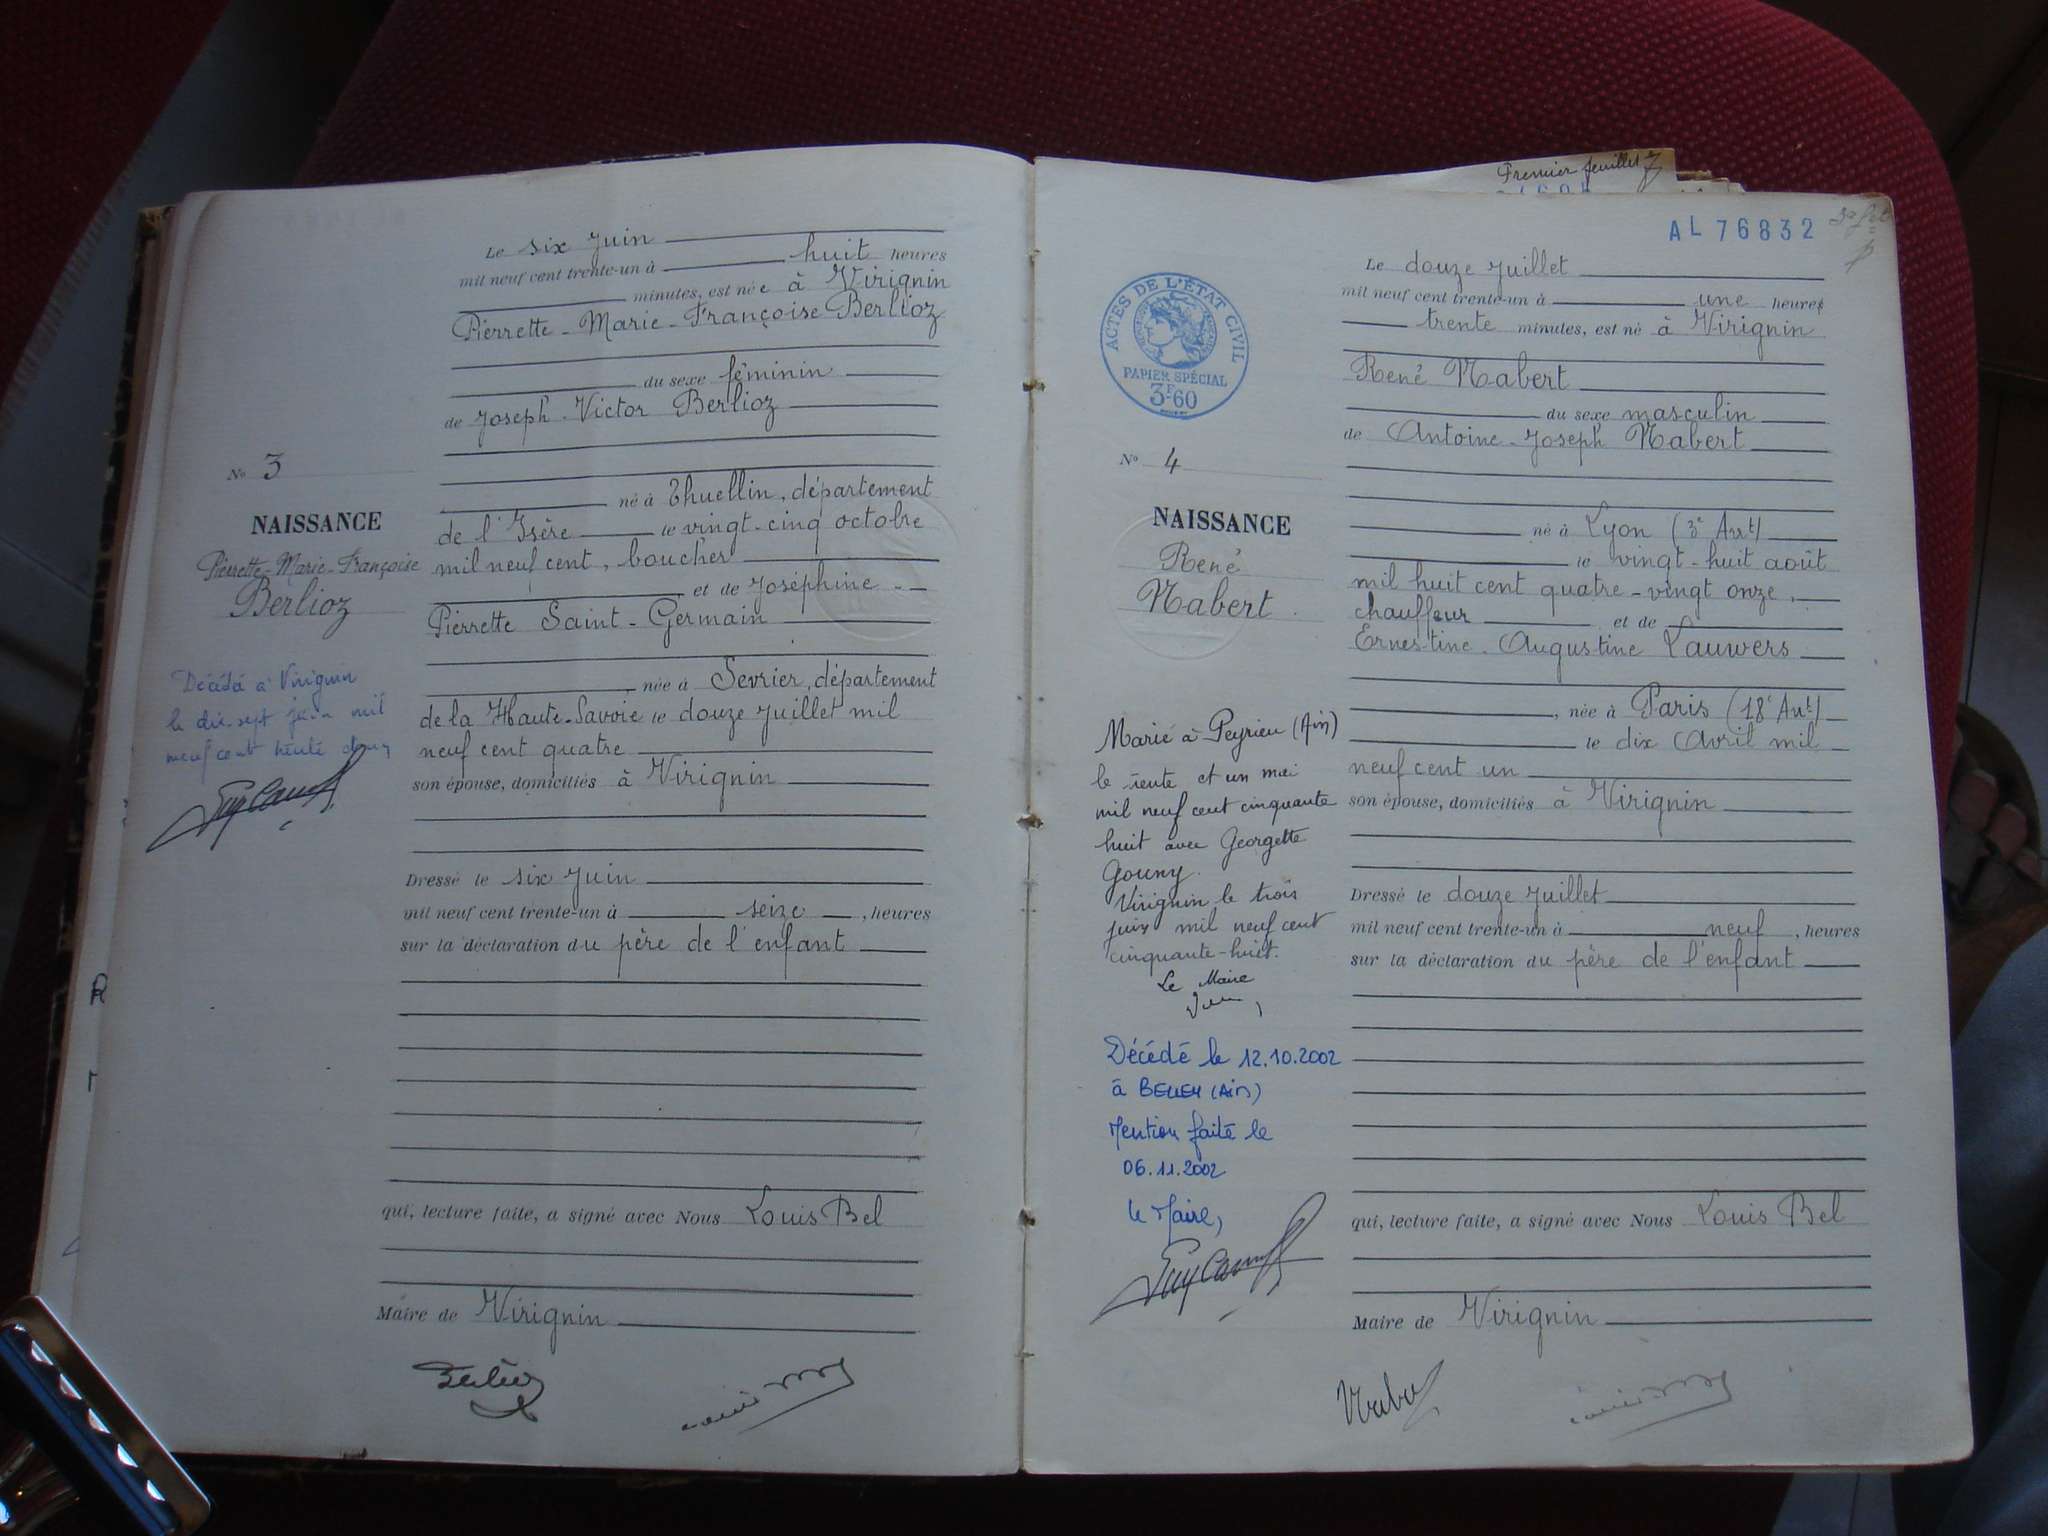 Le six Juin
mil neuf cent trente-un à huit heures
minutes, est née à Virignin
Pierrette-Marie-Françoise Berlioz
du sexe féminin
de Joseph-Victor Berlioz
né à Thuellin, département
de l'Isère le vingt-cinq octobre
mil neuf cent, boucher
et de Joséphine-
Pierrette Saint-Germain
née à Sevrier, département
de la Haute-Savoie le douze Juillet mil
neuf cent quatre
son épouse, domiciliés à Virignin
Dressé le six Juin
mil neuf cent trente-un à seize, heures
sur la déclaration du père de l'enfant
qui, lecture faite, a signé avec Nous Louis Bel
Maire de Virignin
No 3
NAISSANCE
Pierrette-Marie-Françoise
Berlioz
Décédé à Virignin
le dix-sept juin mil
neuf cent trente deux
Premier feuillet
AL 76832
ACTES DE L'ÉTAT CIVIL
PAPIER SPÉCIAL
3F60
No 4
NAISSANCE
René
Nabert
Marié à Peyrieu (Ain)
le trente et un mai
mil neuf cent cinquante
huit avec Georgette
Gouny.
Virignin le trois
juin mil neuf cent
cinquante-huit.
Le Maire
Décédé le 12.10.2002
à BELLEY (Ain)
Mention faite le
06.11.2002
le Maire,
Le douze Juillet
mil neuf cent trente-un à une heures
trente minutes, est né à Virignin
René Nabert
du sexe masculin
de Antoine-Joseph Nabert
né à Lyon (3e Arrt)
le vingt-huit août
mil huit cent quatre-vingt onze,
chauffeur et de
Ernestine-Augustine Lauwers
, née à Paris (18e Arrt)
le dix Avril mil
neuf cent un
son épouse, domiciliés à Virignin
Dressé le douze Juillet
mil neuf cent trente-un à neuf, heures
sur la déclaration du père de l'enfant
qui, lecture faite, a signé avec Nous Louis Bel
Maire de Virignin